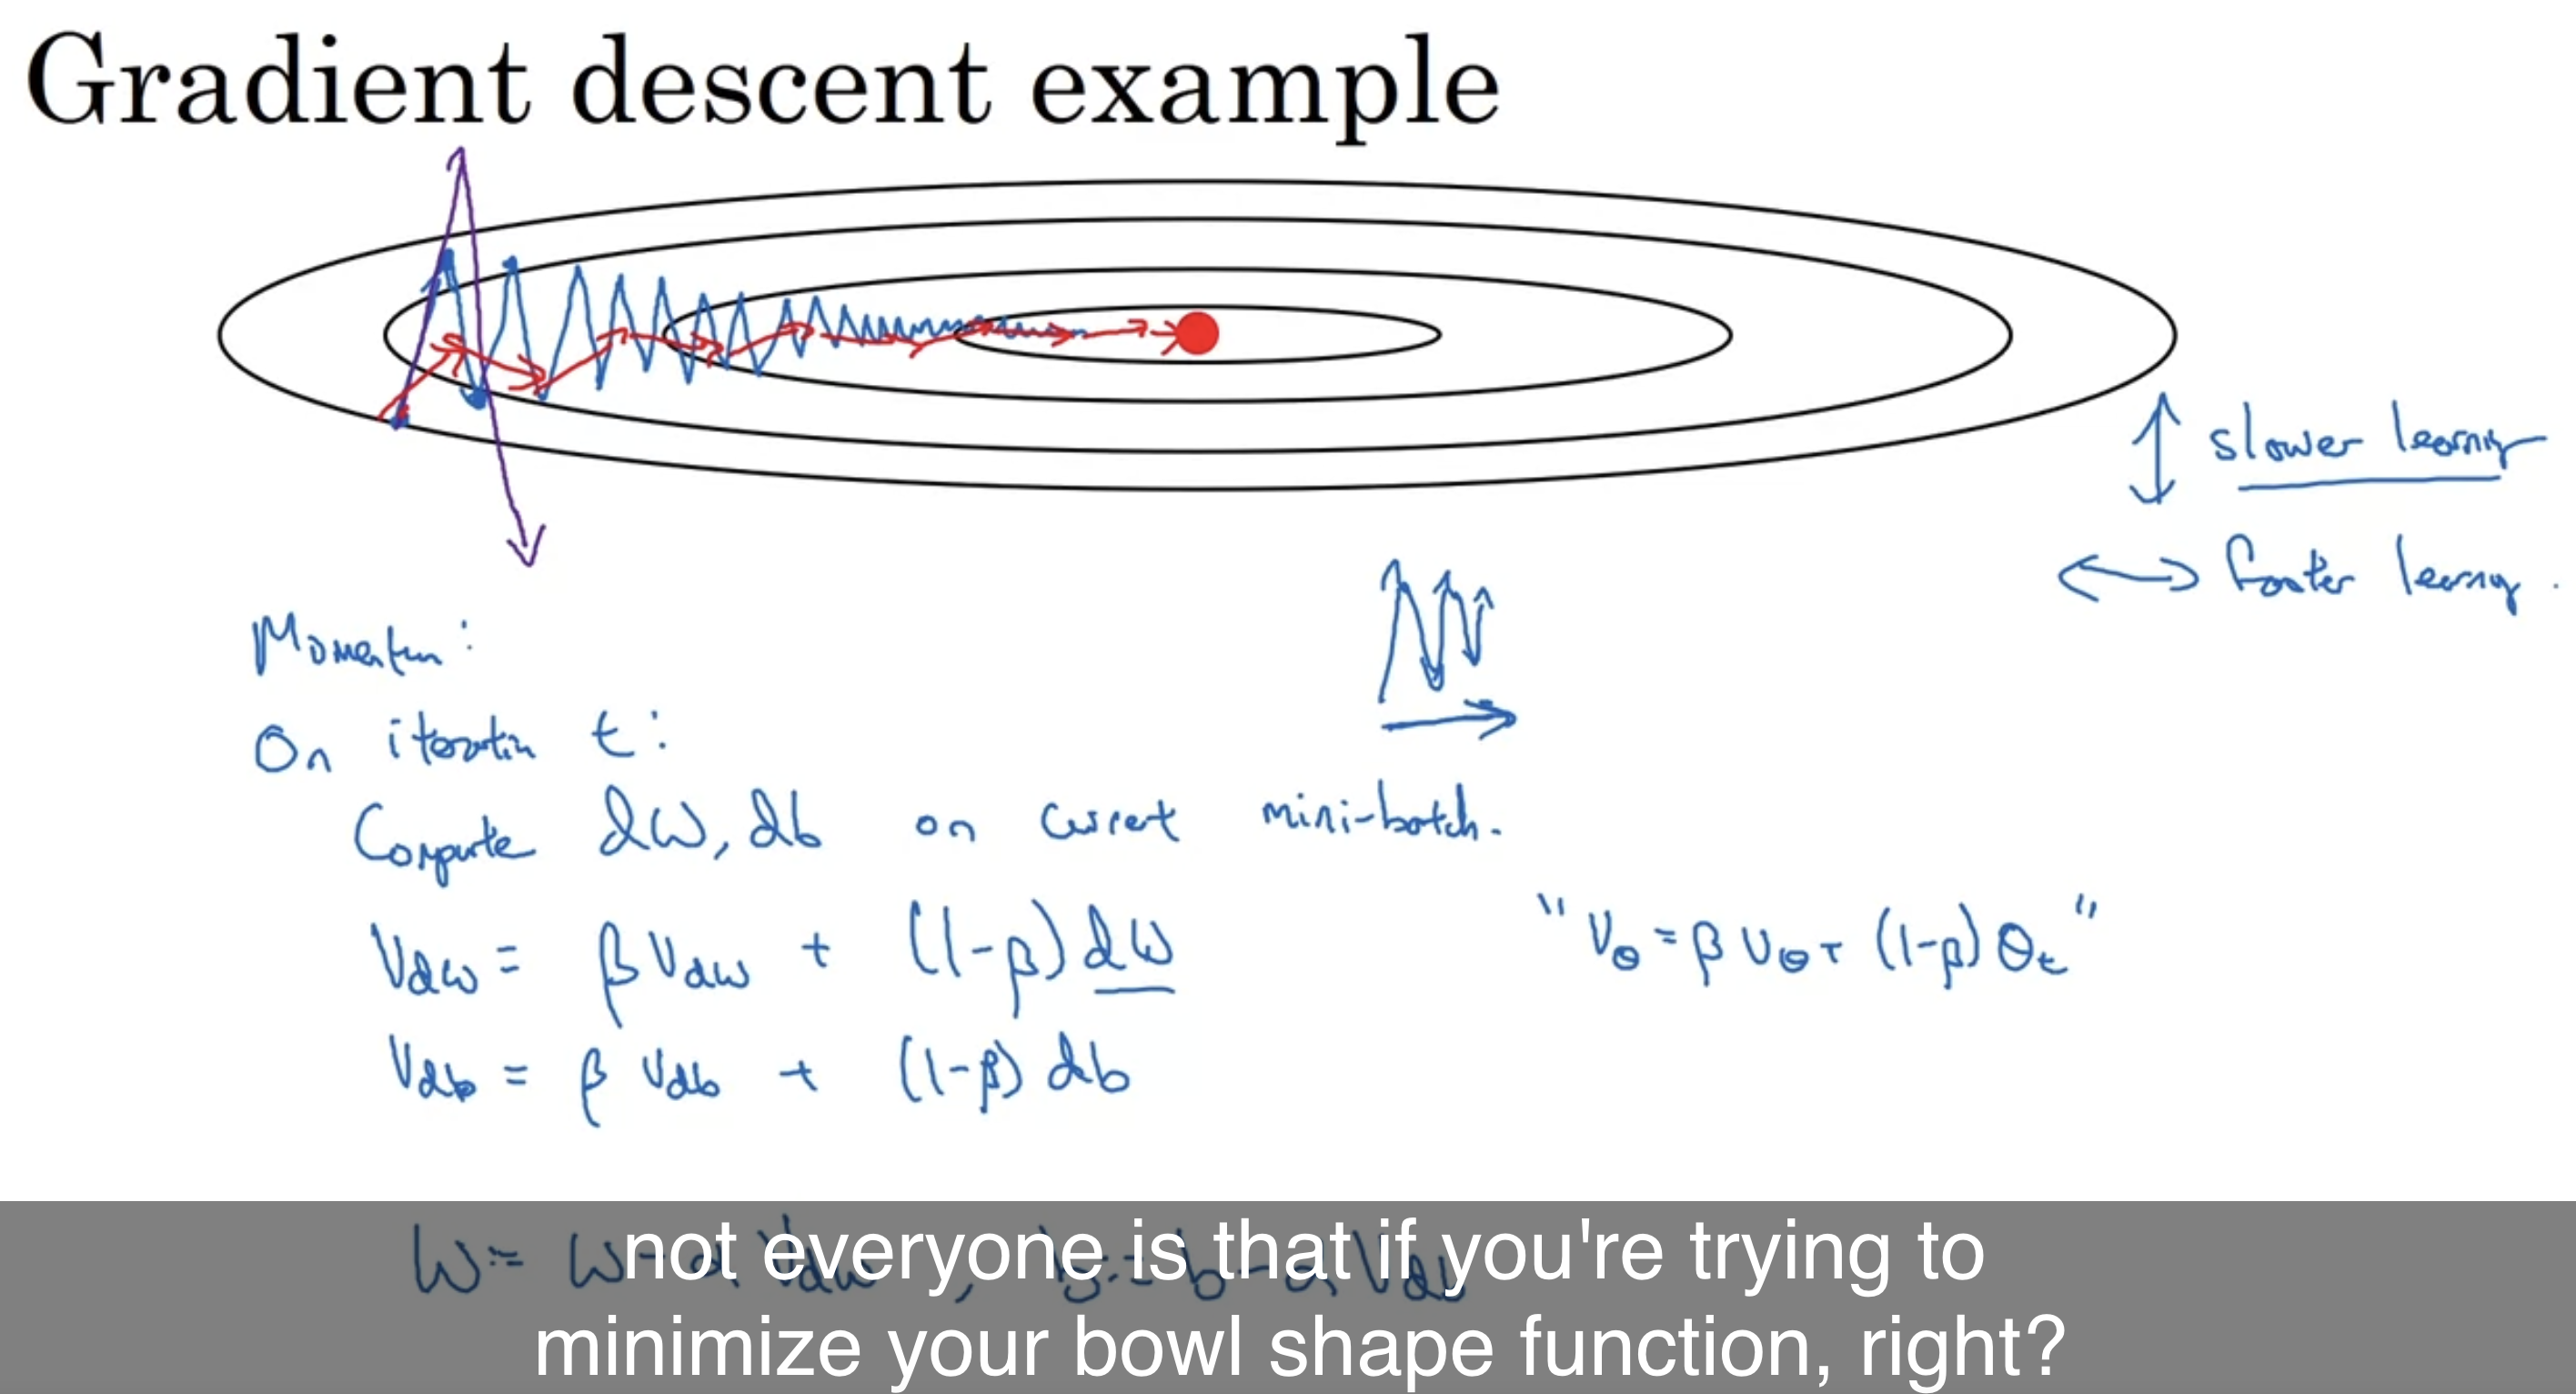 Gradient descent example
slower learning
faster learning.
Momentum:
On iteration t:
Compute dW, db on current mini-batch.
Vdw = β Vdw + (1-β) dW
"Vθ = β Vθ + (1-β) θt"
Vdb = β Vdb + (1-β) db
W := W - α Vdw , b := b - α Vdb
not everyone is that if you're trying to
minimize your bowl shape function, right?